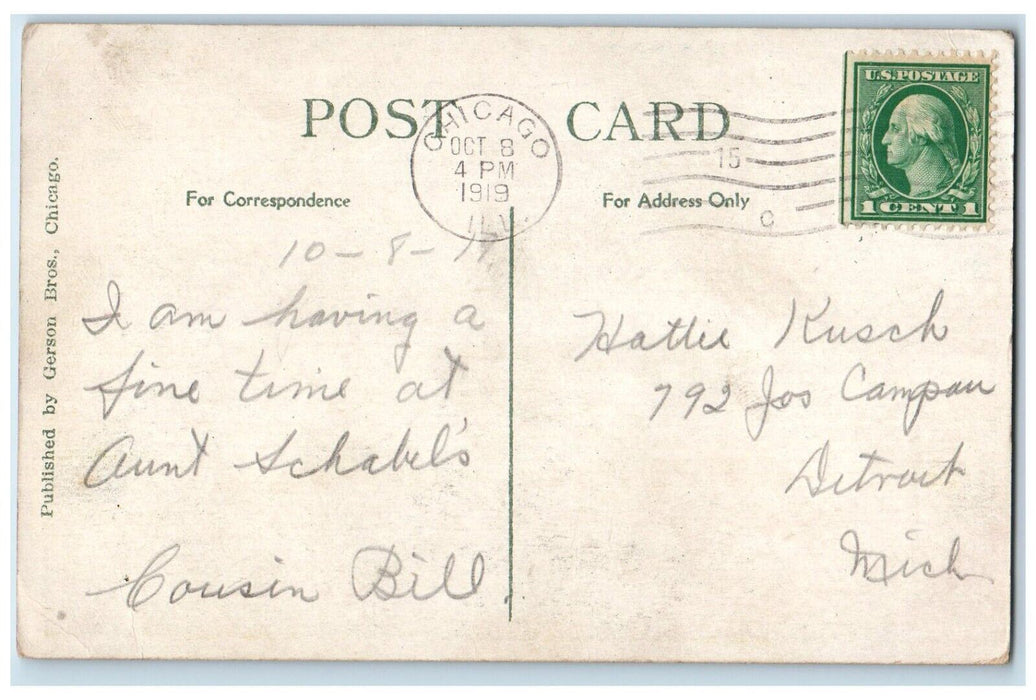 POST CARD
CHICAGO
OCT 8
4 PM
1919
ILL.
15
C
U.S. POSTAGE
1 CENT 1
For Correspondence
For Address Only
Published by Gerson Bros., Chicago.
10-8-19
I am having a
fine time at
Aunt Schabel's
Cousin Bill.
Hattie Kusch
792 Jos Campau
Detroit
Mich